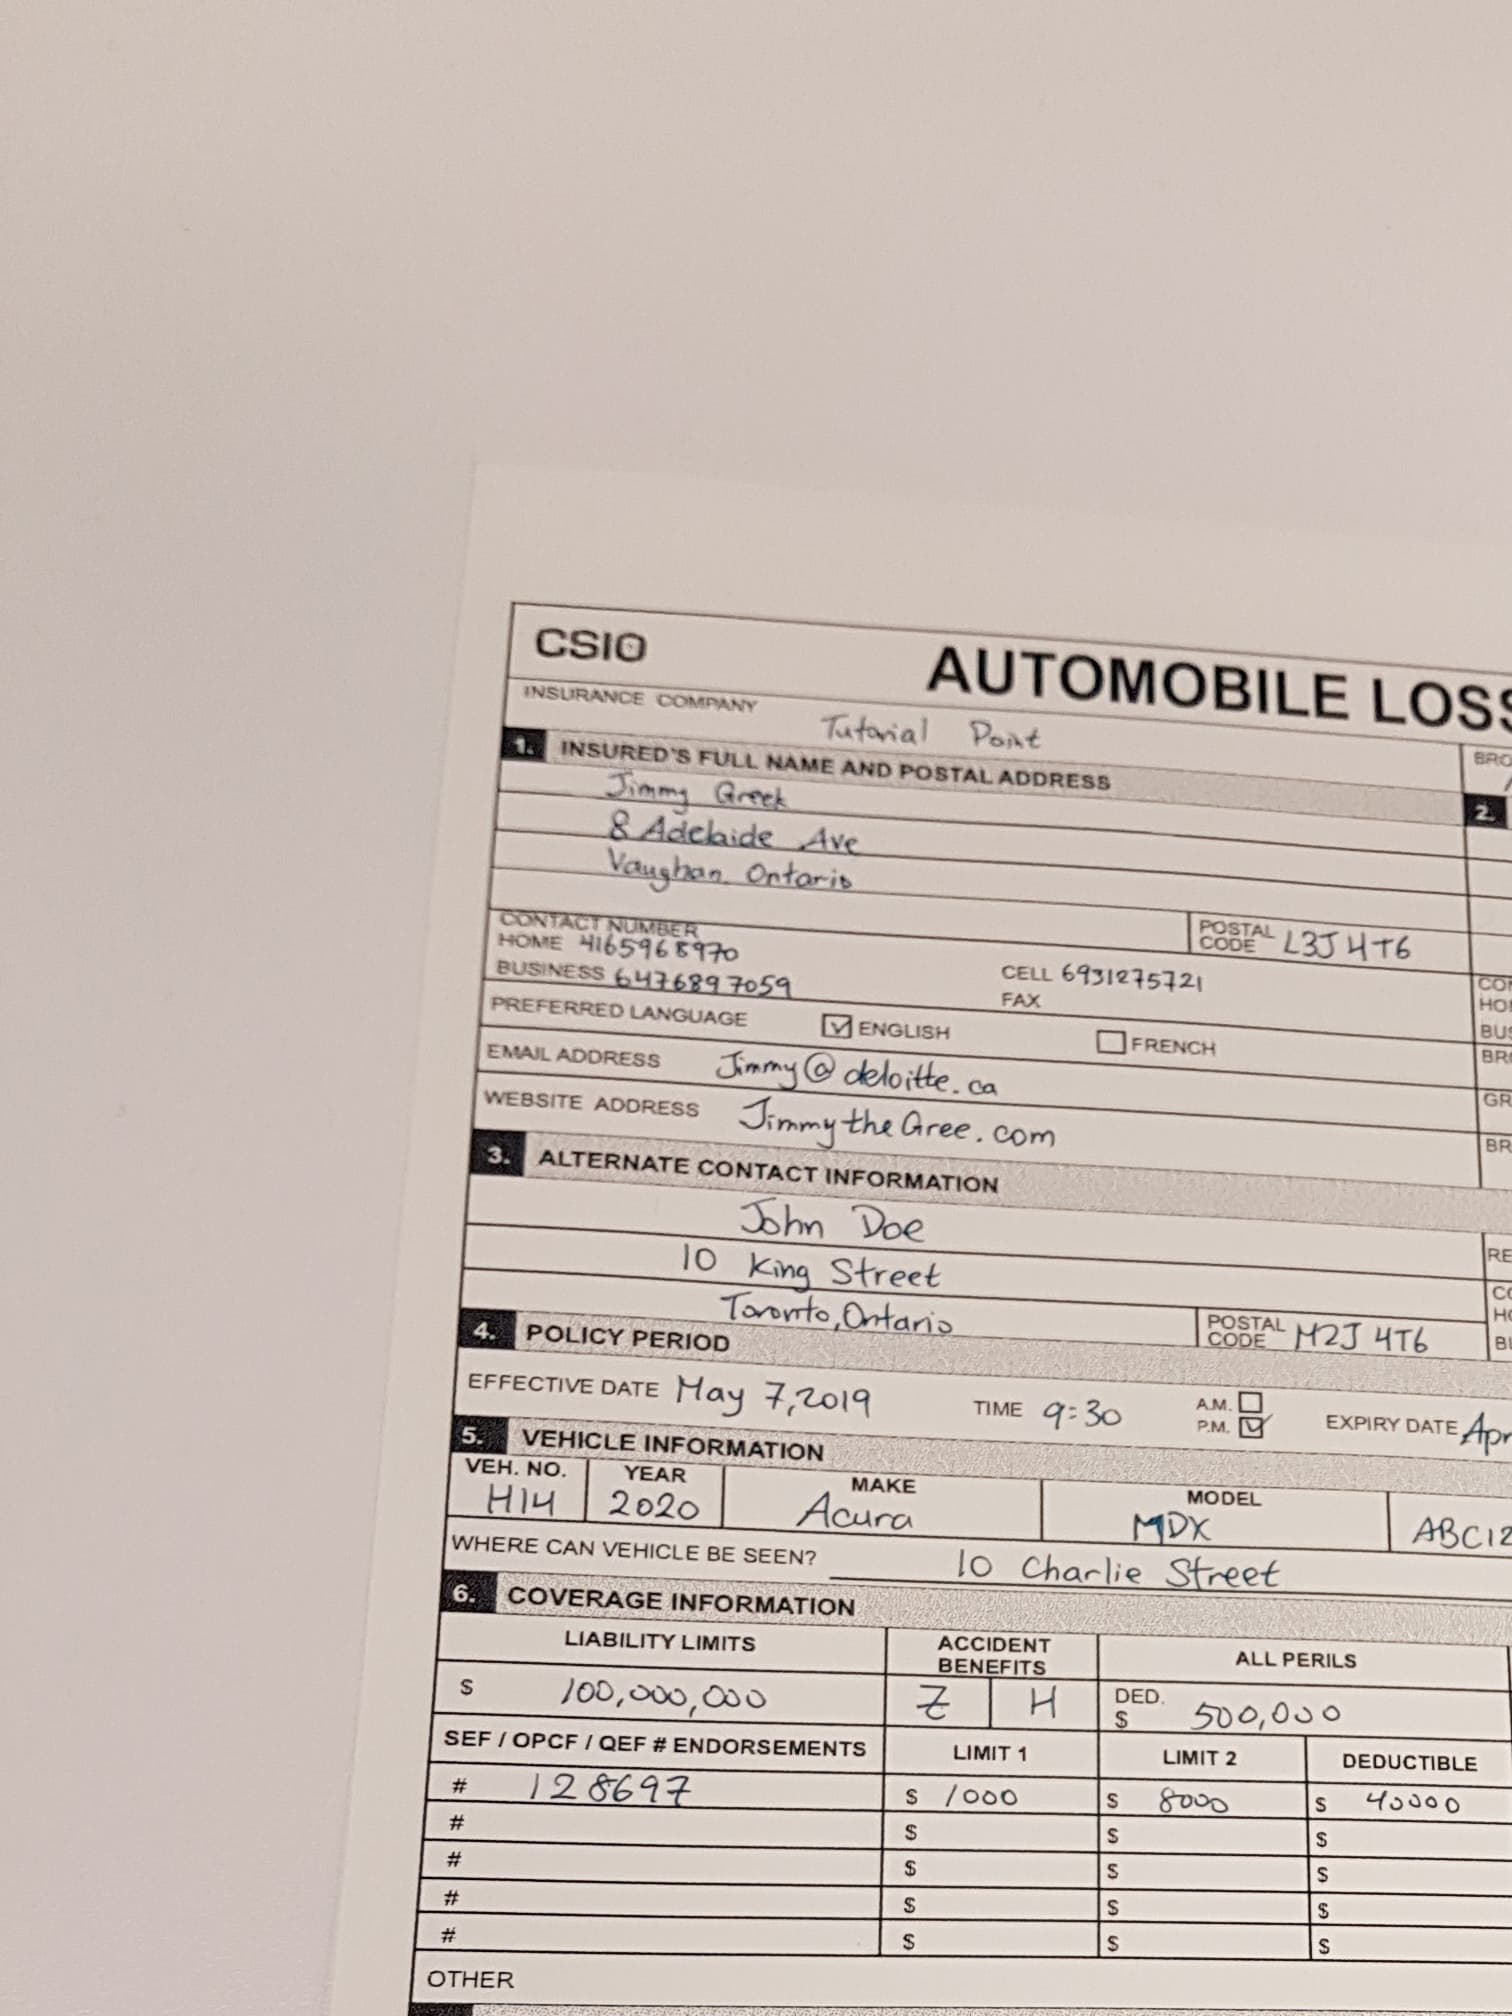 CSIO
AUTOMOBILE LOSS
INSURANCE COMPANY Tutorial Point
BRO
1. INSURED'S FULL NAME AND POSTAL ADDRESS
2.
Jimmy Greek
8 Adelaide Ave
Vaughan, Ontario
CONTACT NUMBER
POSTAL CODE L3J 4T6
HOME 4165968970
CELL 6931275721
BUSINESS 6476897059
FAX
PREFERRED LANGUAGE ENGLISH FRENCH
EMAIL ADDRESS Jimmy@deloitte.ca
WEBSITE ADDRESS JimmytheGree.com
CO
HO
BUS
BR
GR
BR
3. ALTERNATE CONTACT INFORMATION
John Doe
10 King Street
Toronto, Ontario
POSTAL CODE M2J 4T6
RE
CO
HO
BU
4. POLICY PERIOD
EFFECTIVE DATE May 7, 2019 TIME 9:30 A.M. P.M. EXPIRY DATE Apr
5. VEHICLE INFORMATION
VEH. NO. YEAR MAKE MODEL
H14 2020 Acura MDX ABC12
WHERE CAN VEHICLE BE SEEN? 10 Charlie Street
6. COVERAGE INFORMATION
LIABILITY LIMITS ACCIDENT BENEFITS ALL PERILS
$ 100,000,000 Z H DED. $ 500,000
SEF / OPCF / QEF # ENDORSEMENTS LIMIT 1 LIMIT 2 DEDUCTIBLE
# 128697 $ 1000 $ 8000 $ 40000
# $ $ $
# $ $ $
# $ $ $
# $ $ $
OTHER